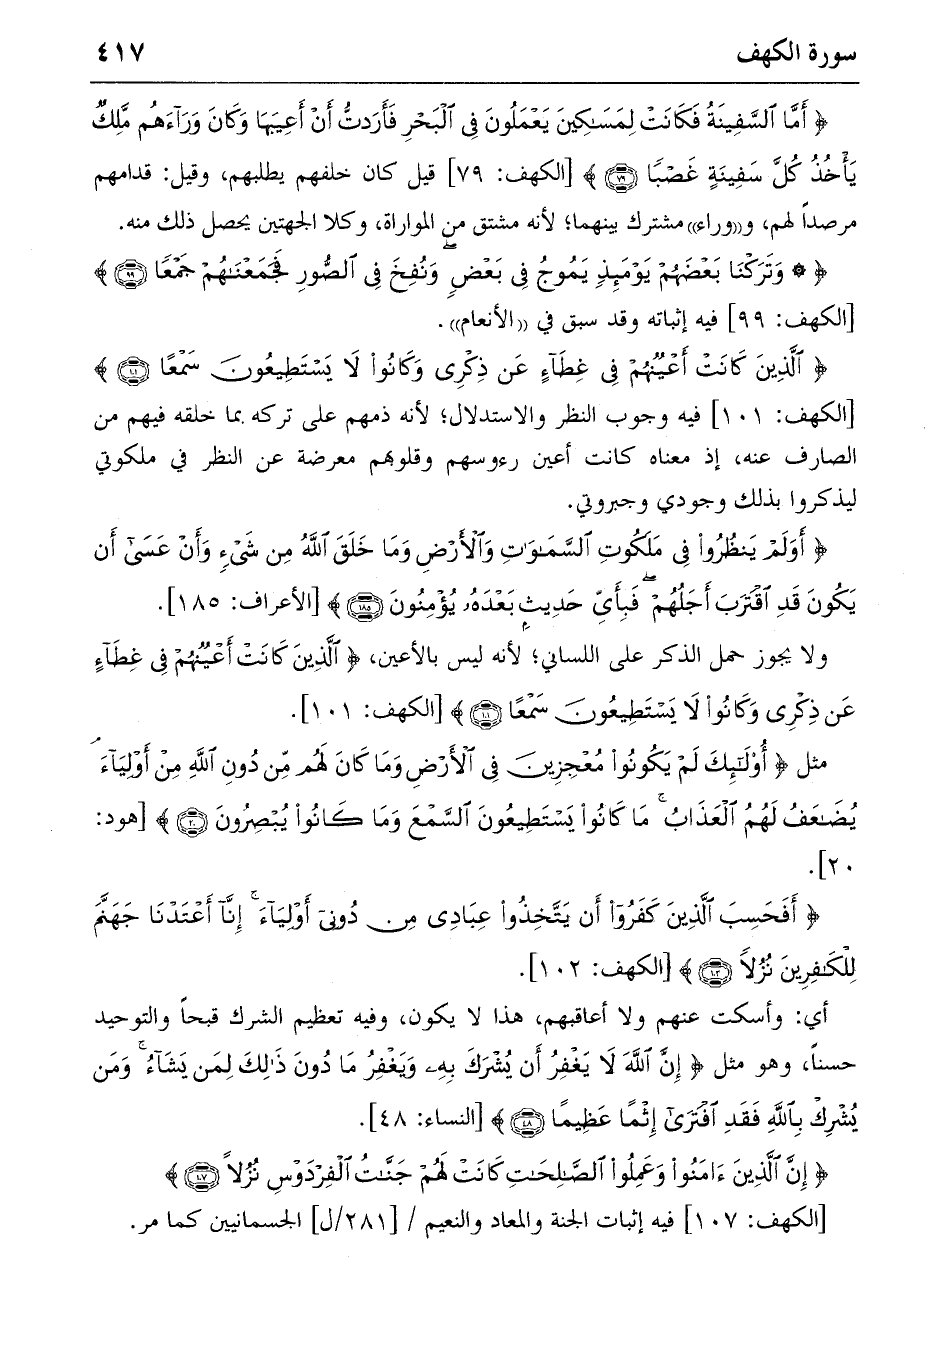 سورة الكهف
٤١٧
﴿ أَمَّا ٱلسَّفِينَةُ فَكَانَتْ لِمَسَٰكِينَ يَعْمَلُونَ فِى ٱلْبَحْرِ فَأَرَدتُّ أَنْ أَعِيبَهَا وَكَانَ وَرَآءَهُم مَّلِكٌ
يَأْخُذُ كُلَّ سَفِينَةٍ غَصْبًا ﴿٧٩﴾ ﴾ [الكهف: ٧٩] قيل كان خلفهم يطلبهم، وقيل: قدامهم
مرصداً لهم، و((وراء)) مشترك بينهما؛ لأنه مشتق من المواراة، وكلا الجهتين يحصل ذلك منه.
﴿ ۞ وَتَرَكْنَا بَعْضَهُمْ يَوْمَئِذٍ يَمُوجُ فِى بَعْضٍ ۖ وَنُفِخَ فِى ٱلصُّورِ فَجَمَعْنَٰهُمْ جَمْعًا ﴿٩٩﴾ ﴾
[الكهف: ٩٩] فيه إثباته وقد سبق في ((الأنعام)).
﴿ ٱلَّذِينَ كَانَتْ أَعْيُنُهُمْ فِى غِطَآءٍ عَن ذِكْرِى وَكَانُوا۟ لَا يَسْتَطِيعُونَ سَمْعًا ﴿١٠١﴾ ﴾
[الكهف: ١٠١] فيه وجوب النظر والاستدلال؛ لأنه ذمهم على تركه بما خلقه فيهم من
الصارف عنه، إذ معناه كانت أعين رءوسهم وقلوبهم معرضة عن النظر في ملكوتي
ليذكروا بذلك وجودي وجبروتي.
﴿ أَوَلَمْ يَنظُرُوا۟ فِى مَلَكُوتِ ٱلسَّمَٰوَٰتِ وَٱلْأَرْضِ وَمَا خَلَقَ ٱللَّهُ مِن شَىْءٍ وَأَنْ عَسَىٰٓ أَن
يَكُونَ قَدِ ٱقْتَرَبَ أَجَلُهُمْ ۖ فَبِأَىِّ حَدِيثٍۭ بَعْدَهُۥ يُؤْمِنُونَ ﴿١٨٥﴾ ﴾ [الأعراف: ١٨٥].
ولا يجوز حمل الذكر على اللساني؛ لأنه ليس بالأعين، ﴿ ٱلَّذِينَ كَانَتْ أَعْيُنُهُمْ فِى غِطَآءٍ
عَن ذِكْرِى وَكَانُوا۟ لَا يَسْتَطِيعُونَ سَمْعًا ﴿١٠١﴾ ﴾ [الكهف: ١٠١].
مثل ﴿ أُو۟لَٰٓئِكَ لَمْ يَكُونُوا۟ مُعْجِزِينَ فِى ٱلْأَرْضِ وَمَا كَانَ لَهُم مِّن دُونِ ٱللَّهِ مِنْ أَوْلِيَآءَ ۘ
يُضَٰعَفُ لَهُمُ ٱلْعَذَابُ ۚ مَا كَانُوا۟ يَسْتَطِيعُونَ ٱلسَّمْعَ وَمَا كَانُوا۟ يُبْصِرُونَ ﴿٢٠﴾ ﴾ [هود:
٢٠].
﴿ أَفَحَسِبَ ٱلَّذِينَ كَفَرُوٓا۟ أَن يَتَّخِذُوا۟ عِبَادِى مِن دُونِىٓ أَوْلِيَآءَ ۚ إِنَّآ أَعْتَدْنَا جَهَنَّمَ
لِلْكَٰفِرِينَ نُزُلًا ﴿١٠٢﴾ ﴾ [الكهف: ١٠٢].
أي: وأسكت عنهم ولا أعاقبهم، هذا لا يكون، وفيه تعظيم الشرك قبحاً والتوحيد
حسناً، وهو مثل ﴿ إِنَّ ٱللَّهَ لَا يَغْفِرُ أَن يُشْرَكَ بِهِۦ وَيَغْفِرُ مَا دُونَ ذَٰلِكَ لِمَن يَشَآءُ ۚ وَمَن
يُشْرِكْ بِٱللَّهِ فَقَدِ ٱفْتَرَىٰٓ إِثْمًا عَظِيمًا ﴿٤٨﴾ ﴾ [النساء: ٤٨].
﴿ إِنَّ ٱلَّذِينَ ءَامَنُوا۟ وَعَمِلُوا۟ ٱلصَّٰلِحَٰتِ كَانَتْ لَهُمْ جَنَّٰتُ ٱلْفِرْدَوْسِ نُزُلًا ﴿١٠٧﴾ ﴾
[الكهف: ١٠٧] فيه إثبات الجنة والمعاد والنعيم / [٢٨١/ل] الجسمانيين كما مر.